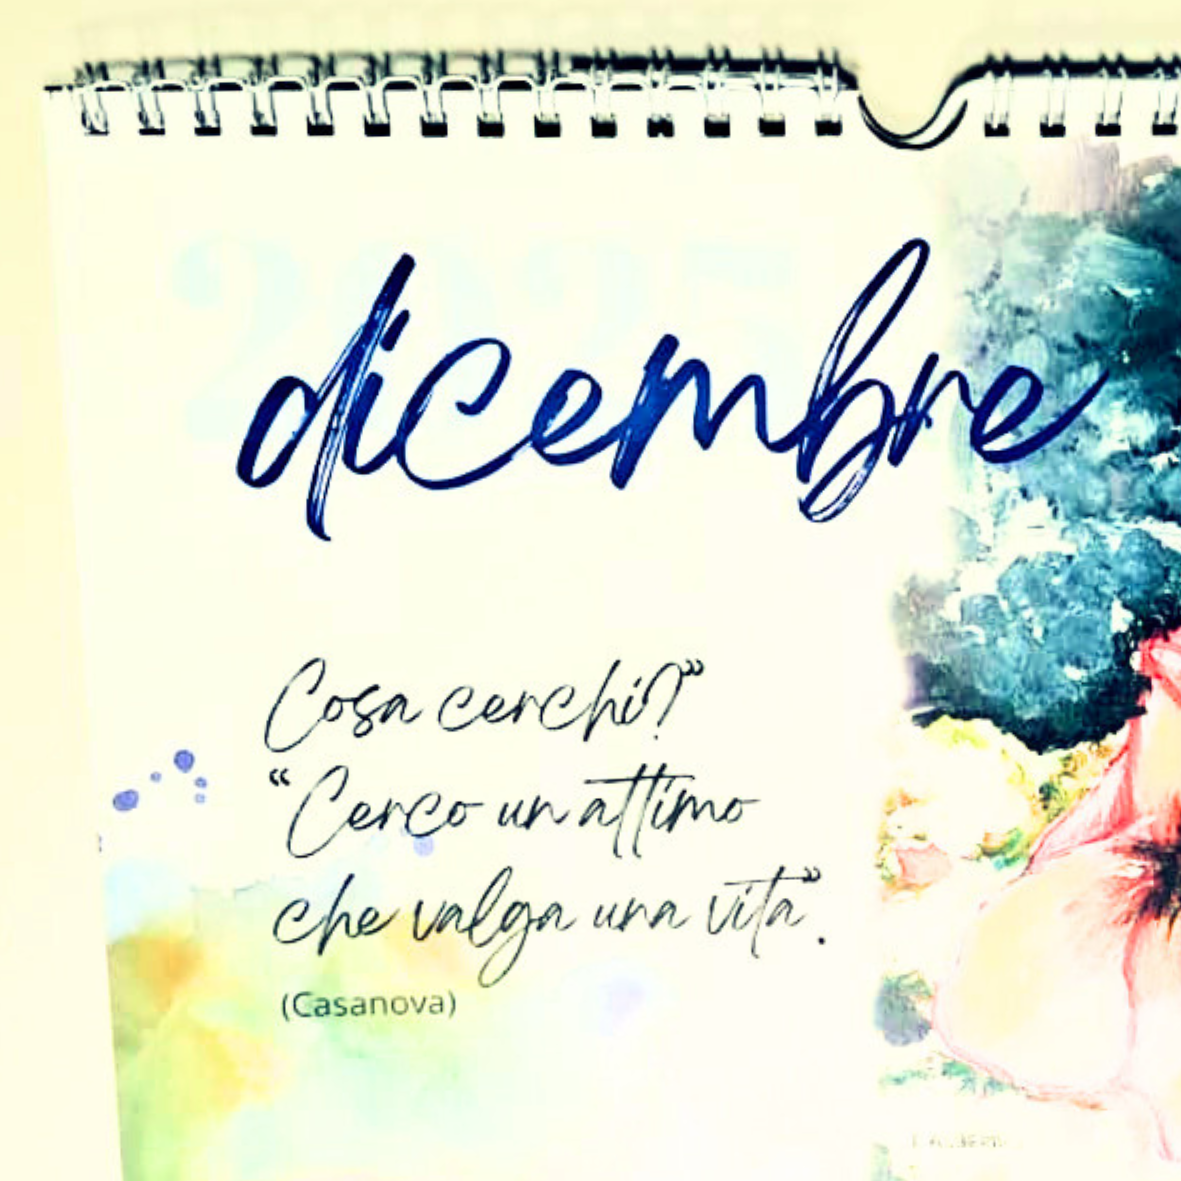 2025
dicembre
Cosa cerchi?”
“Cerco un attimo
che valga una vita”.
(Casanova)